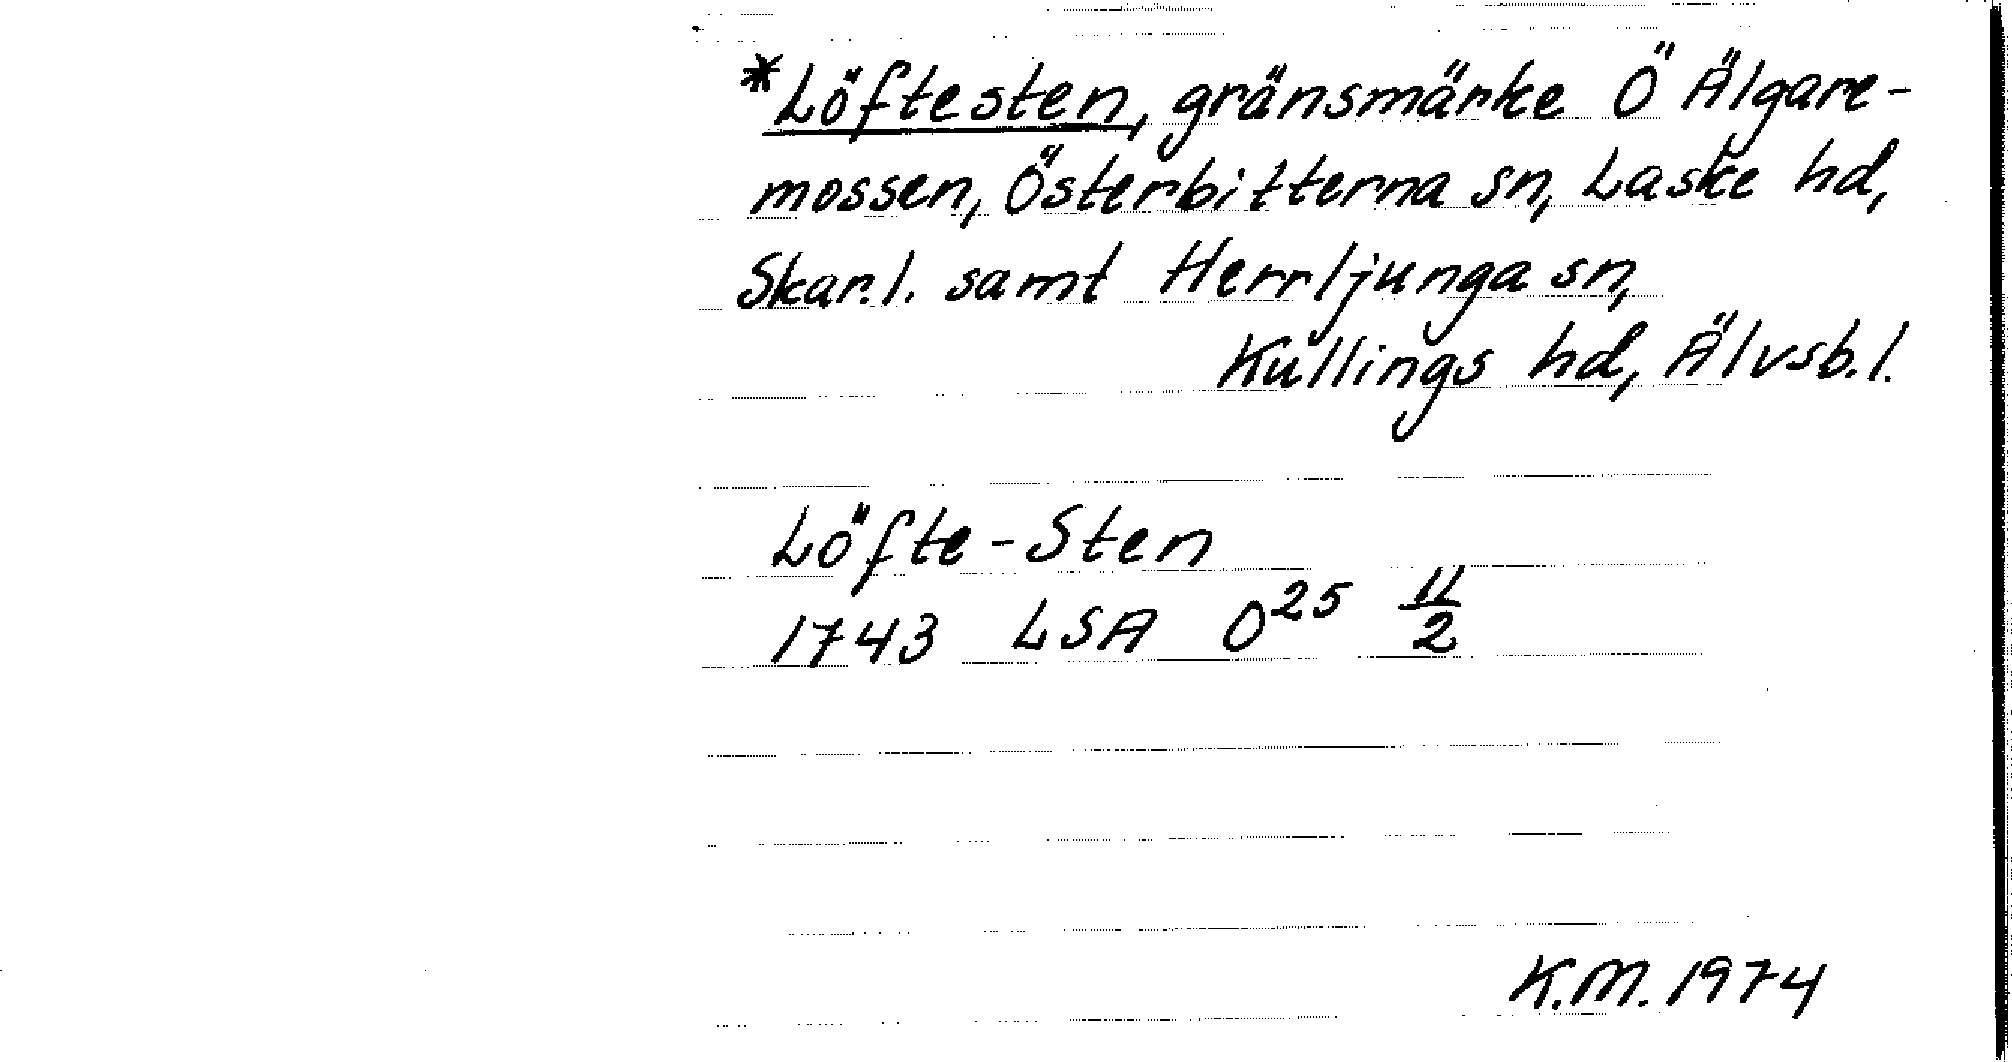 *Löftesten, gränsmärke Ö Älgare-
mossen, Österbitterna sn, Laske hd,
Skar.l. samt Herrljunga sn,
Kullings hd, Älvsb.l.
Löfte-Sten
1743 LSA O²⁵ 11/2
K.M. 1974